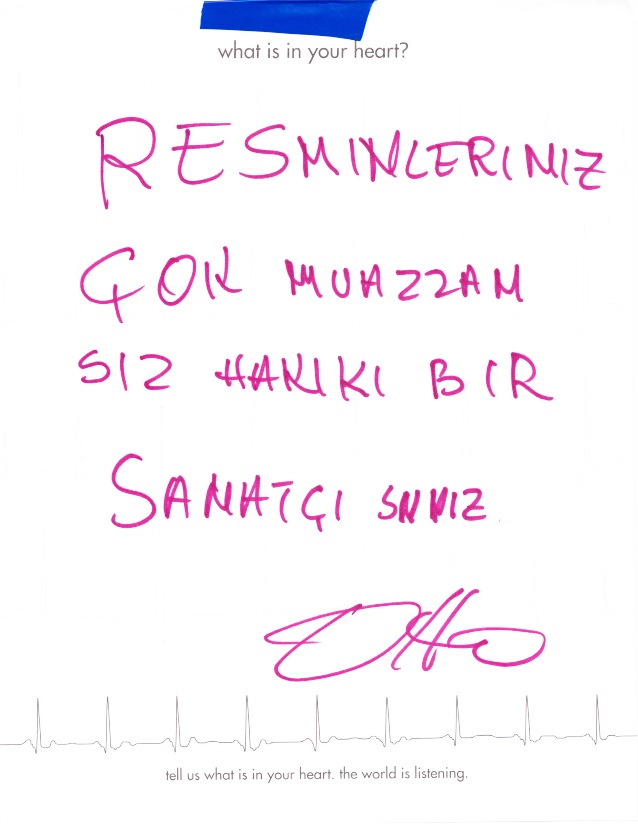 what is in your heart?
RESMINLERINIZ
ÇOK MUAZZAM
SIZ HAKIKI BIR
SANATÇI
tell us what is in your heart. the world is listening.